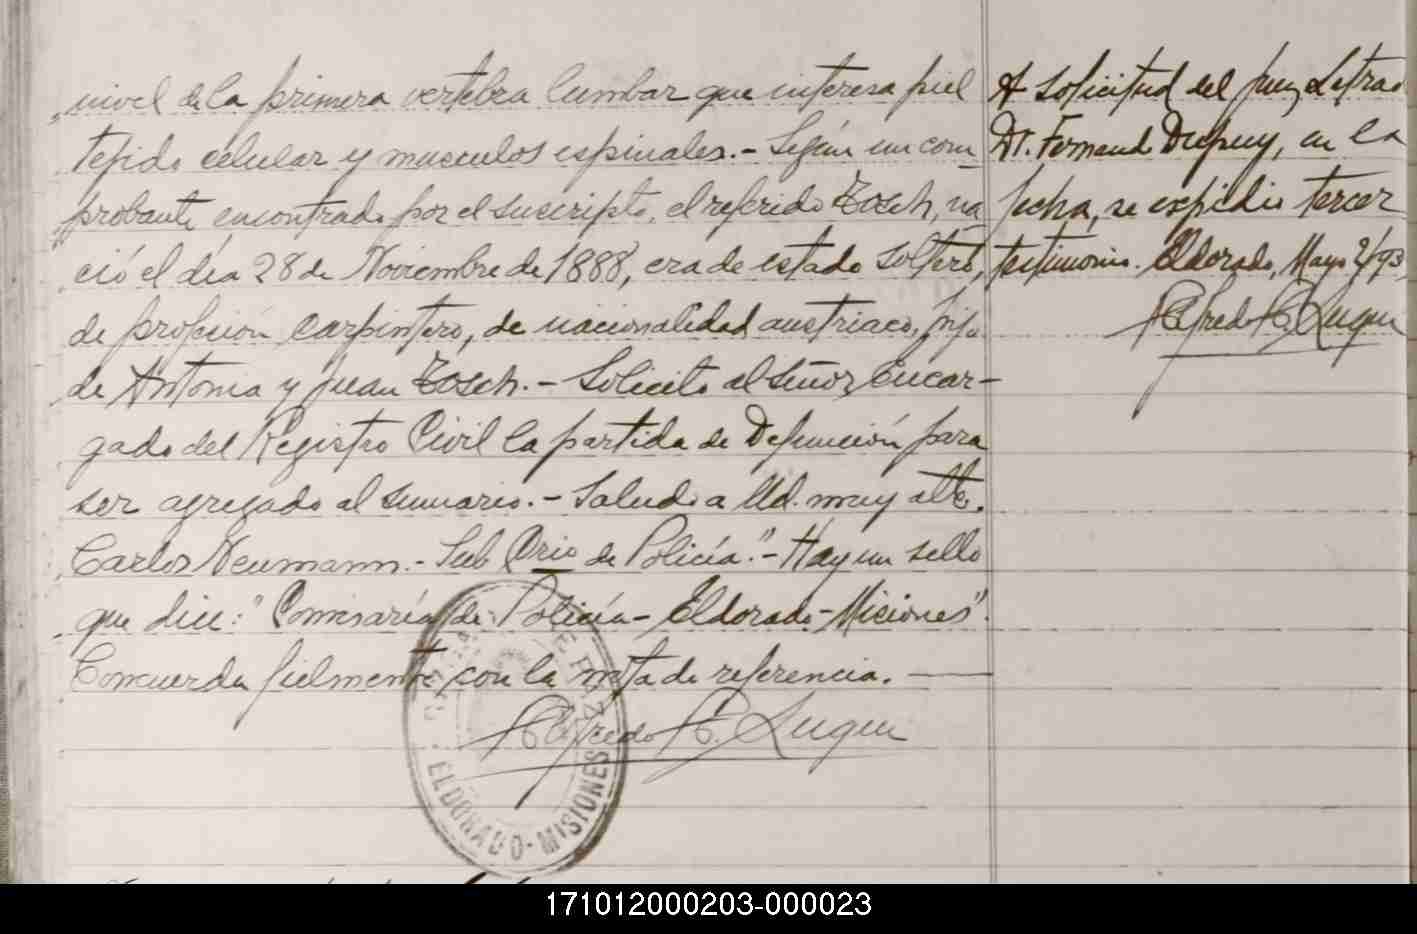 nivel de la primera vertebra lumbar que interesa piel
tejido celular y musculos espinales.- Según un com-
probante encontrado por el suscripto, el referido Tosch, na
ció el día 28 de Noviembre de 1888, era de estado soltero,
de profesión carpintero, de nacionalidad austriaco, hijo
de Antonia y Juan Tosch.- Solicito al señor Encar-
gado del Registro Civil la partida de Defunción para
ser agregado al sumario.- Saludo a Ud. muy atte.
Carlos Neumann.- Sub Crio de Policía."- Hay un sello
que dice: "Comisaría de Policía- Eldorado- Misiones".
Concuerda fielmente con la nota de referencia.
Alfredo C. Luque
ELDORADO-MISIONES
A solicitud del Juez Letrado
Dr. Fernand Dupuy, en la
fecha, se expidió tercer
testimonio. Eldorado, Mayo
Alfredo C. Luque
171012000203-000023